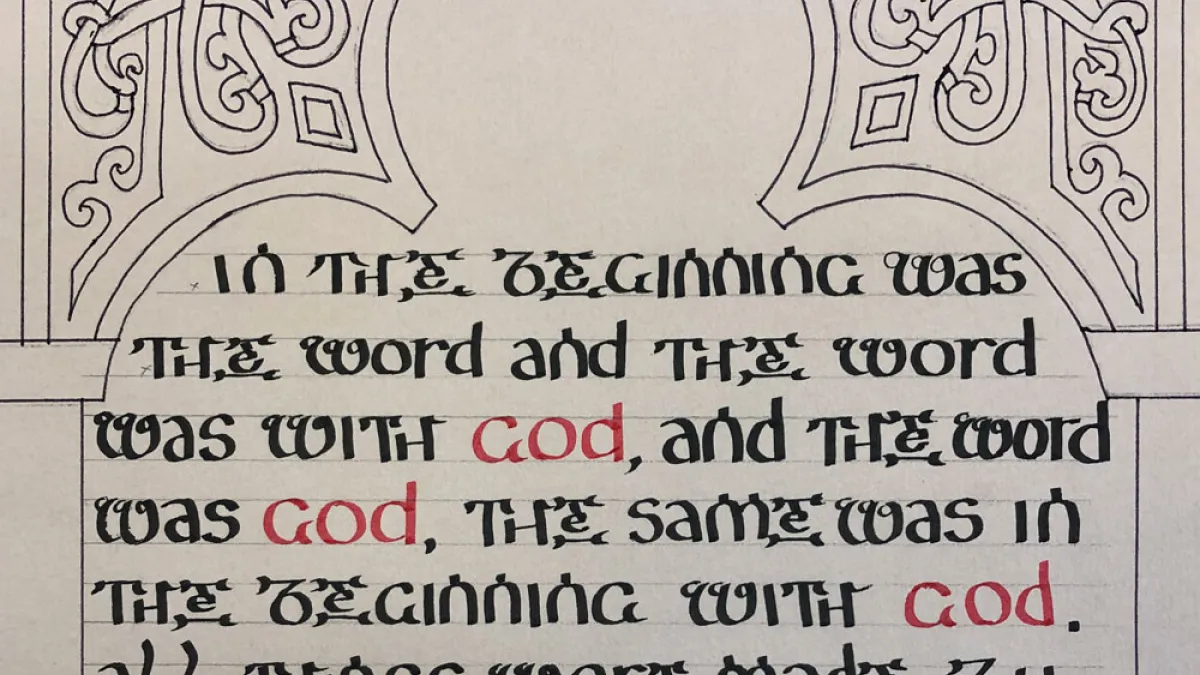 in the beginning was
the word and the word
was with God, and the word
was God, the same was in
the beginning with God.
all things were made by